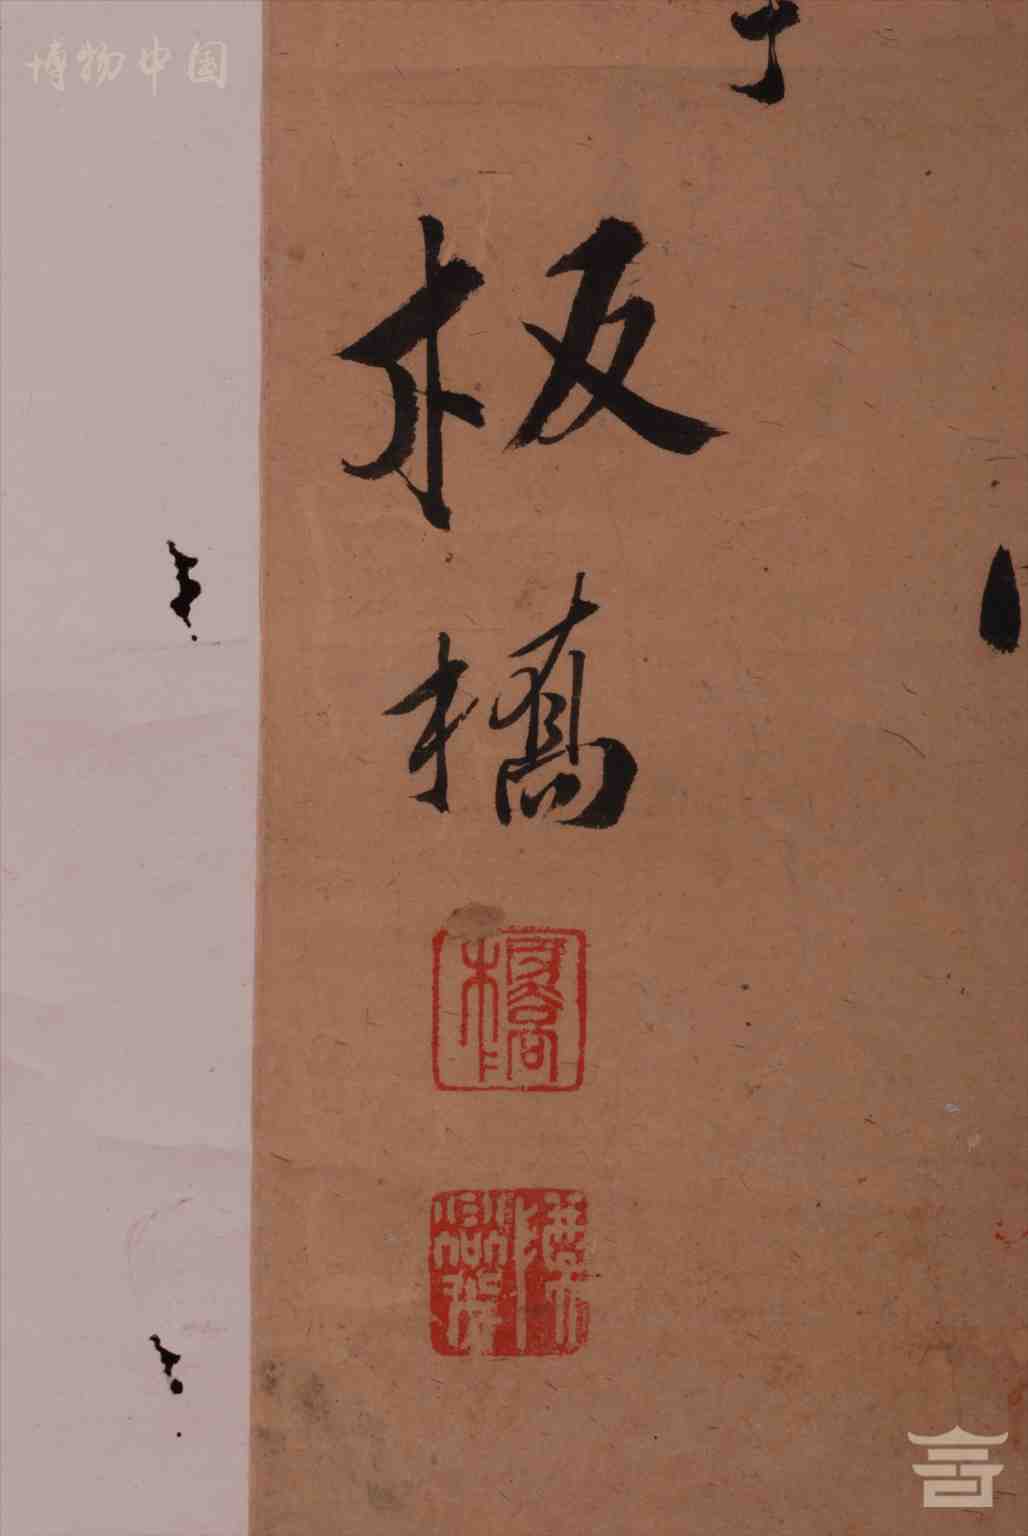 博物中国
板橋
板橋